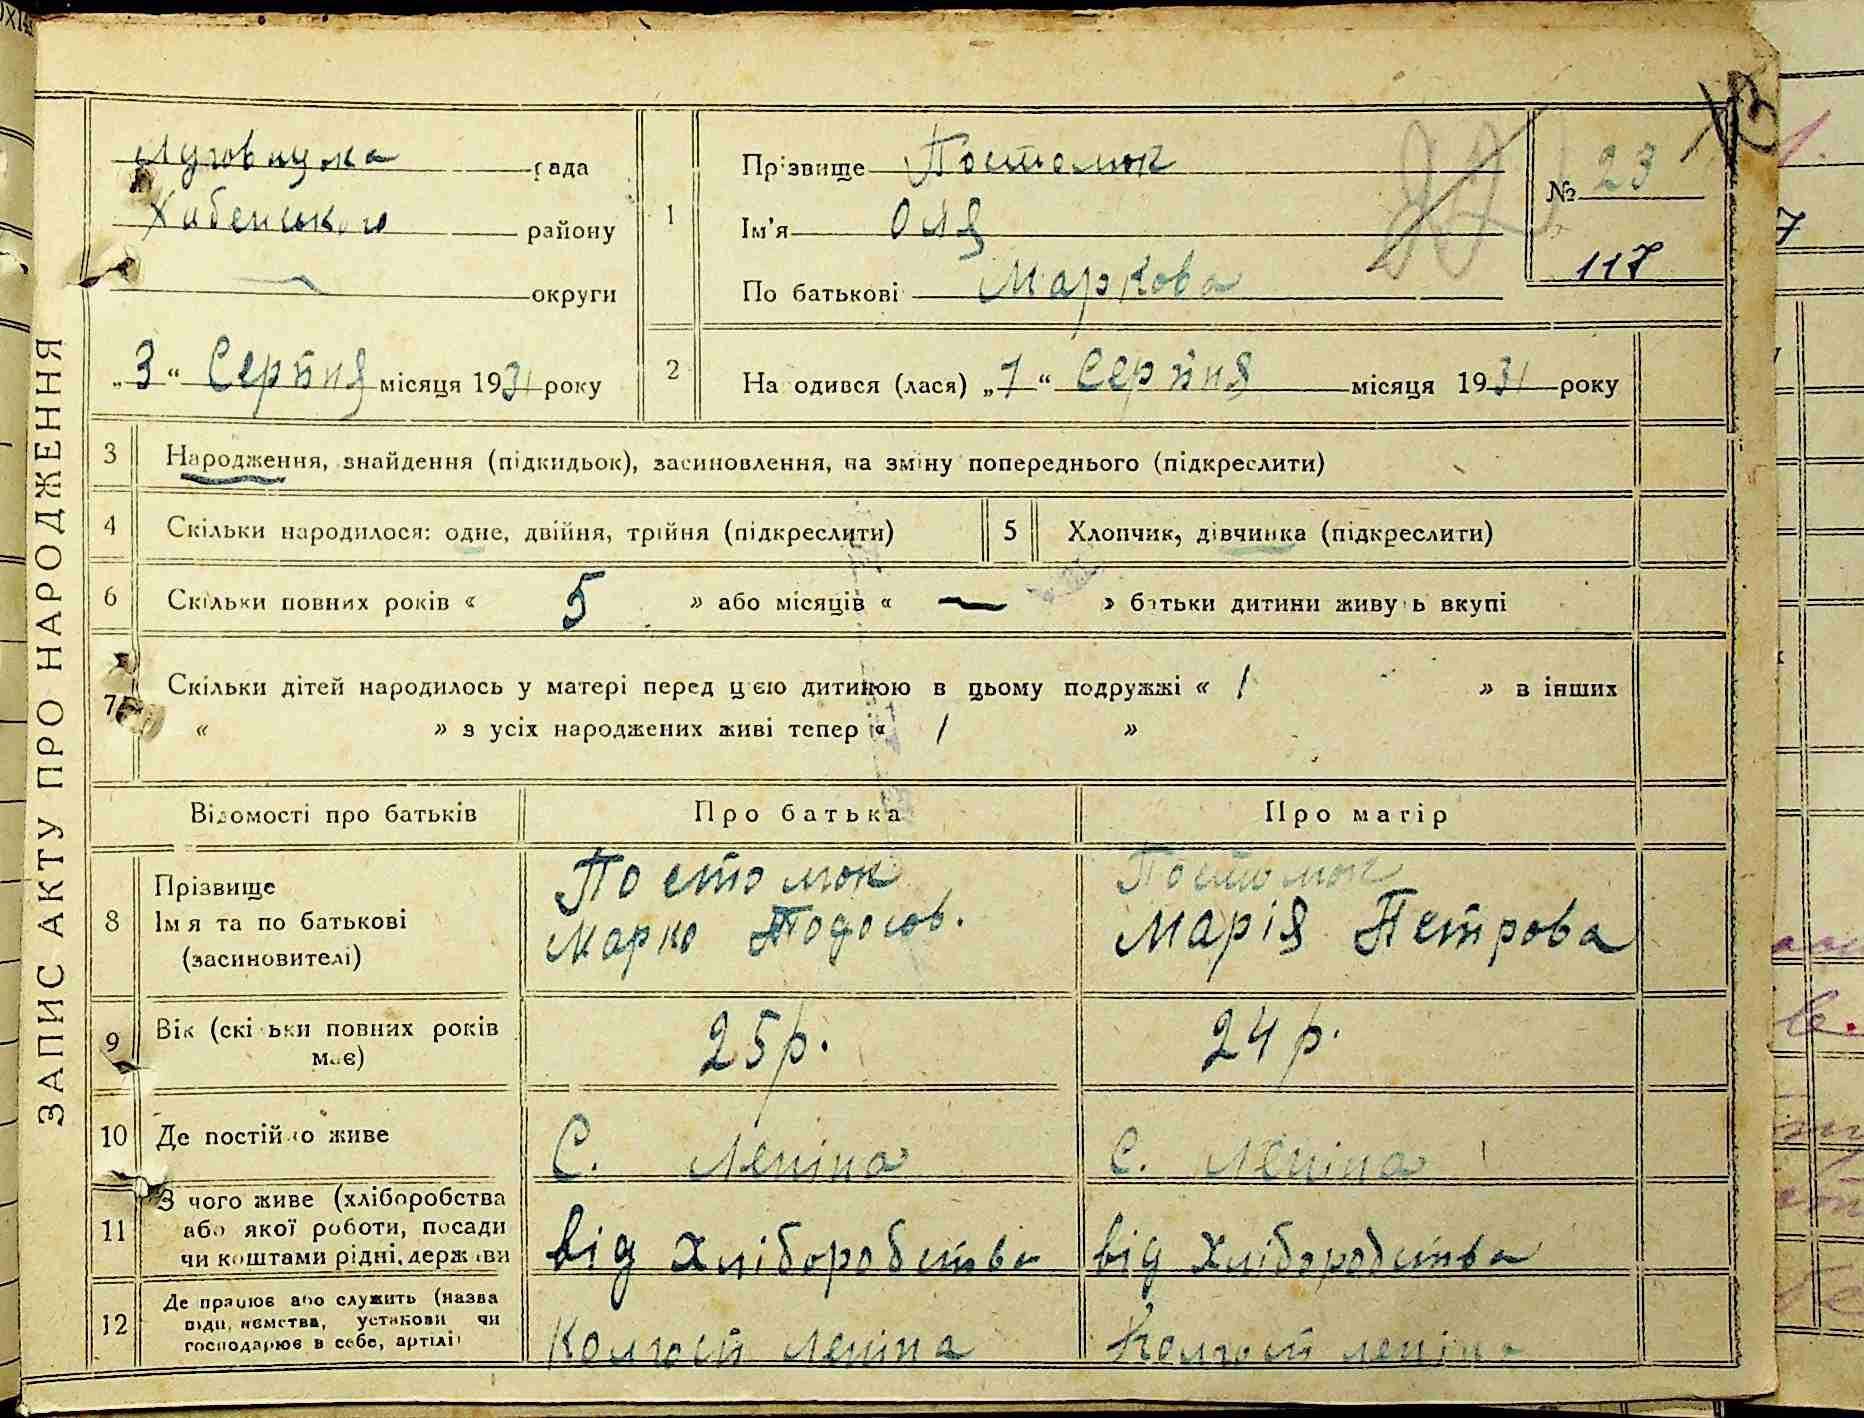 ЗАПИС АКТУ ПРО НАРОДЖЕННЯ
Луговицька рада
Хабенського району
округи
„3“ Серпня місяця 1931 року
1
Прізвище Постомок
Ім'я Оля
По батькові Маркова
№ 23
117
2
Народився (лася) „1“ Серпня місяця 1931 року
3 Народження, знайдення (підкидьок), засиновлення, на зміну попереднього (підкреслити)
4 Скільки народилося: одне, двійня, трійня (підкреслити)
5 Хлопчик, дівчинка (підкреслити)
6 Скільки повних років « 5 » або місяців « — » батьки дитини живуть вкупі
7 Скільки дітей народилось у матері перед цією дитиною в цьому подружжі « 1 » в інших
« » з усіх народжених живі тепер « 1 »
Відомості про батьків Про батька Про матір
8 Прізвище
Ім'я та по батькові
(засиновителі)
Постомок
Марко Тодосов.
Постомок
Марія Петрова
9 Вік (скільки повних років
має)
25 р. 24 р.
10 Де постійно живе С. Леніна С. Леніна
11 З чого живе (хліборобства
або якої роботи, посади
чи коштами рідні, держави
від хліборобства від хліборобства
12 Де працює або служить (назва
підприємства, установи чи
господарює в себе, артілі
Колгосп Леніна Колгосп Леніна